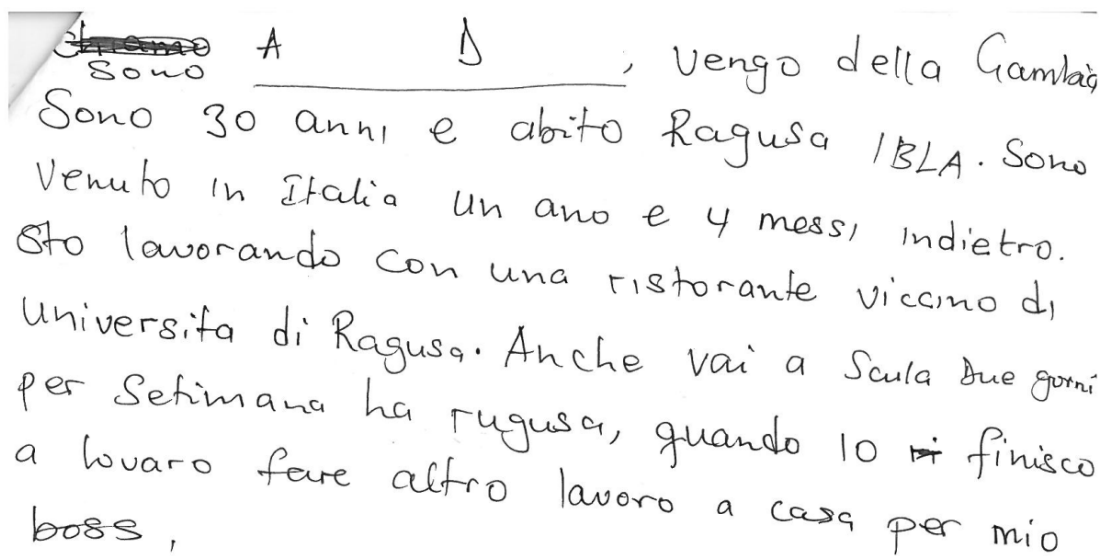 Sono A D, vengo della Gambia
Sono 30 anni e abito Ragusa IBLA. Sono
venuto in Italia un ano e 4 messi indietro.
Sto lavorando con una ristorante viccino di
Universita di Ragusa. Anche vai a Scula Due gorni
per Setimana ha rugusa, quando Io finisco
a lovaro fare altro lavoro a casa per mio
boss,